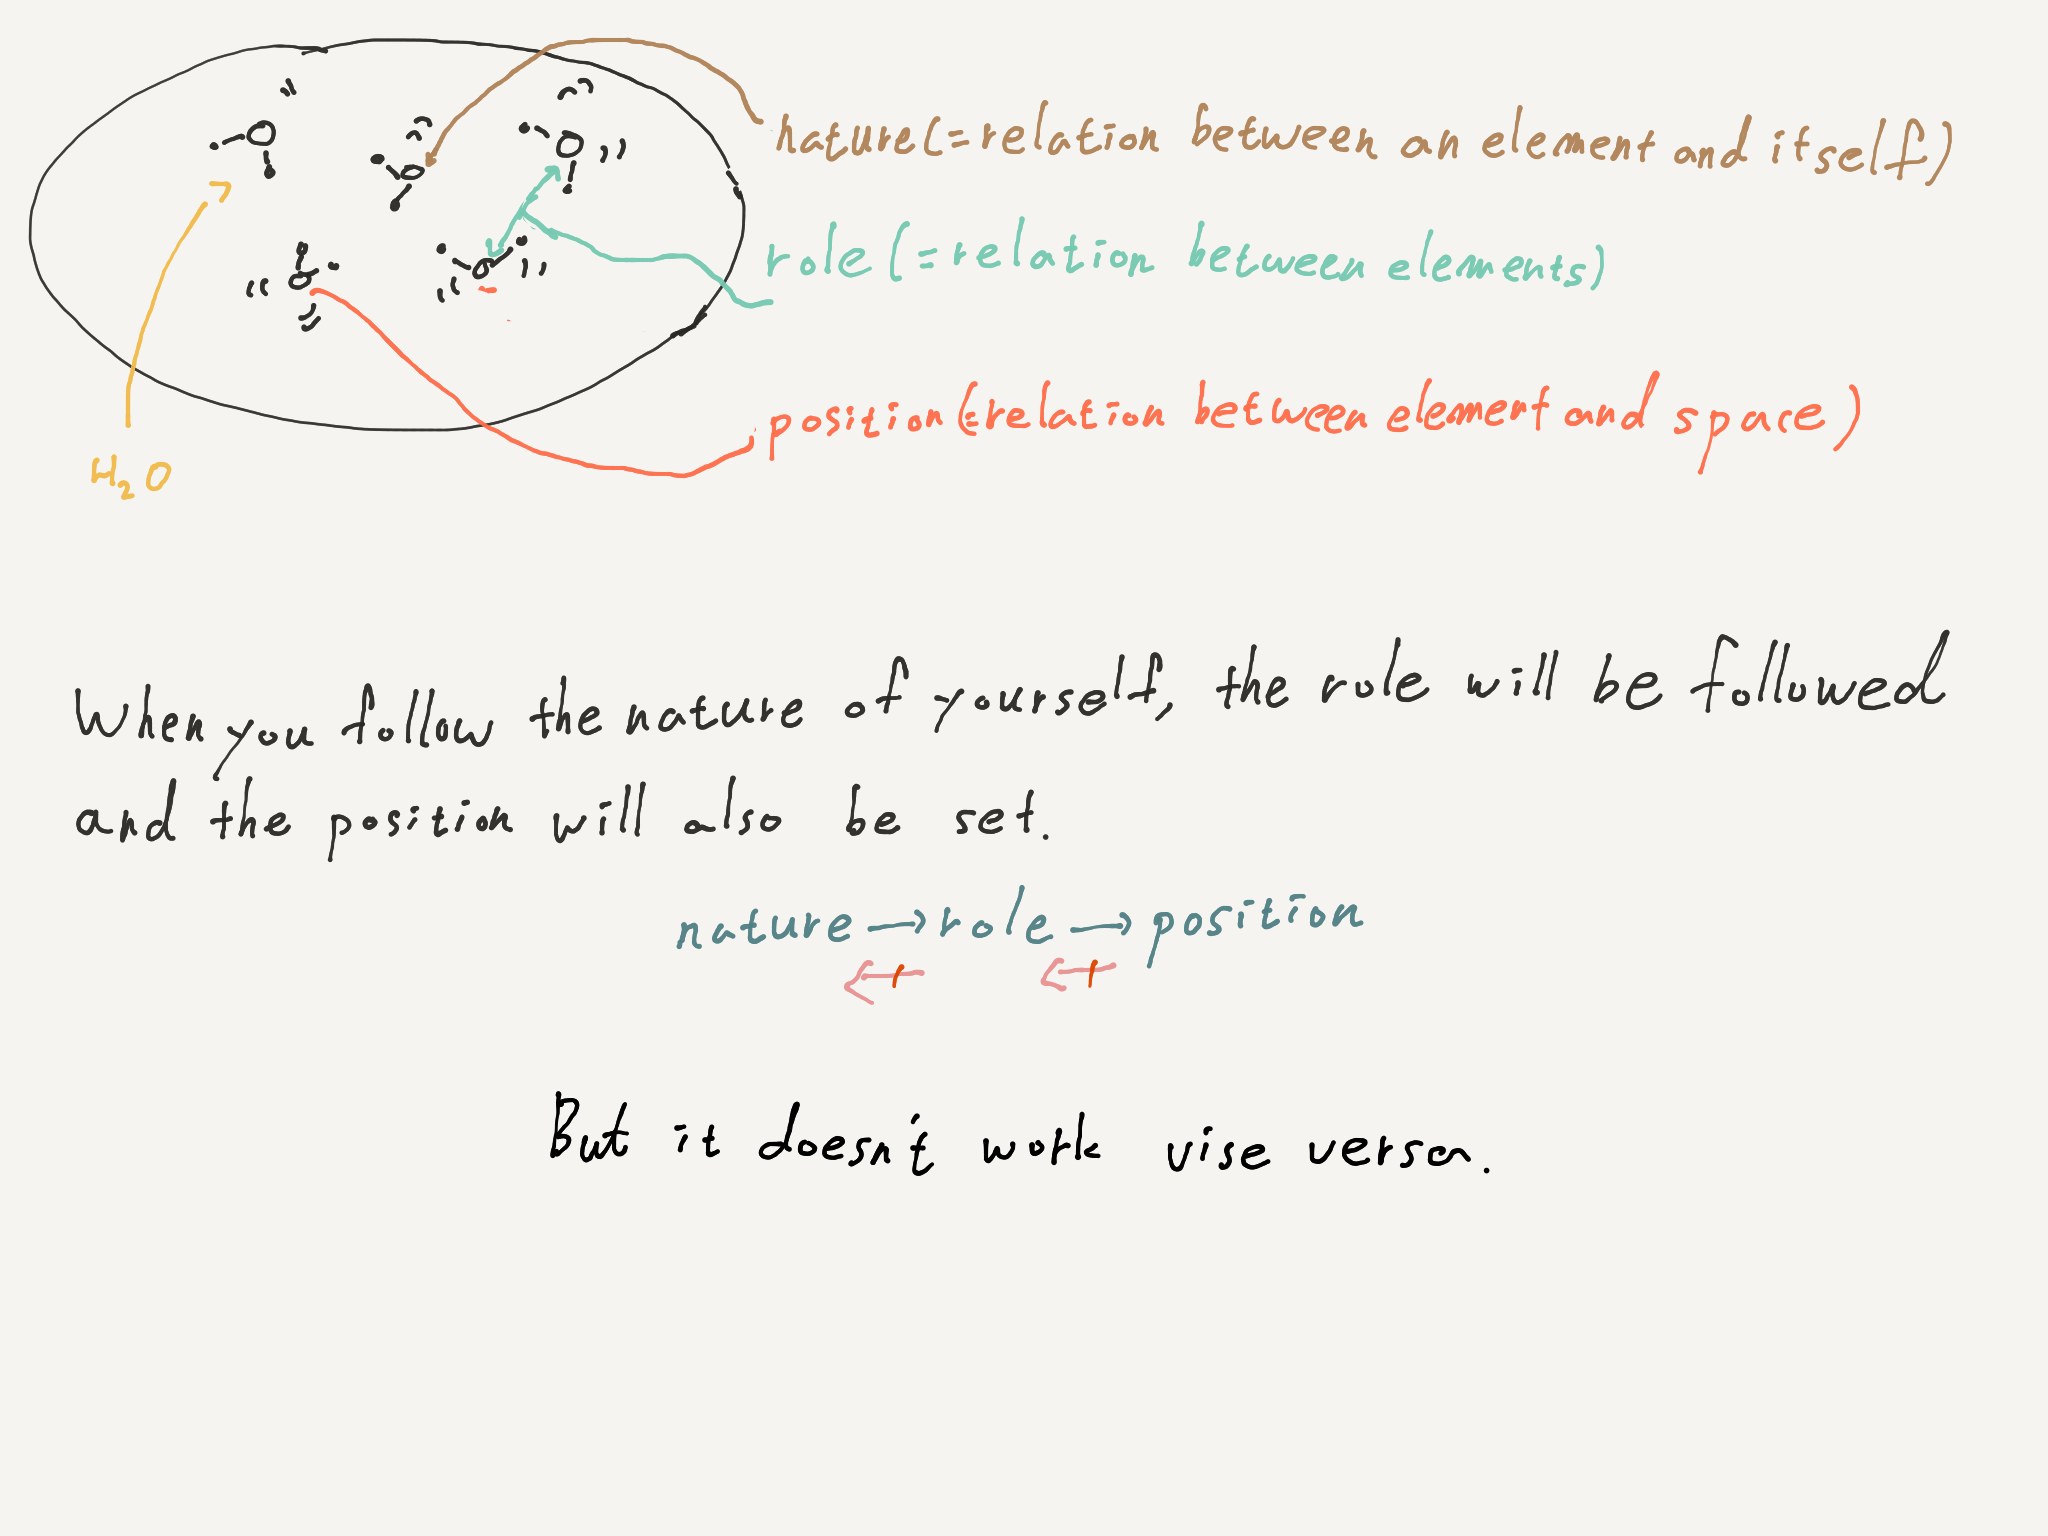 nature(=relation between an element and itself)
role(=relation between elements)
position(=relation between element and space)
H₂O
When you follow the nature of yourself, the role will be followed
and the position will also be set.
nature → role → position
But it doesn't work vise versa.